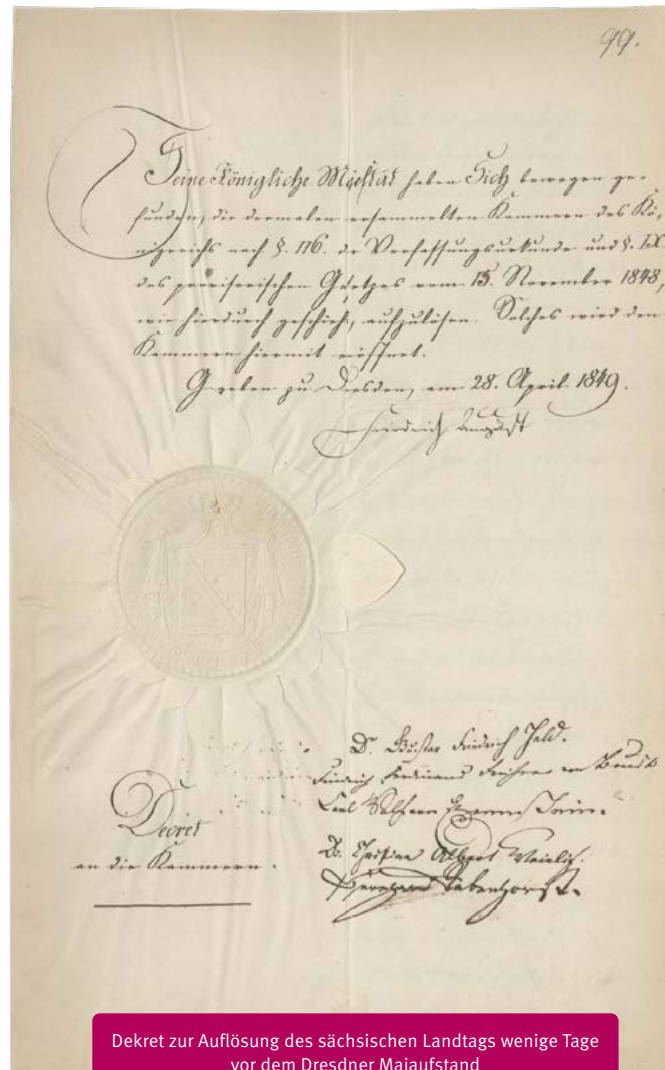 99.
Seine Königliche Majestät haben Sich bewogen ge-
funden, die dermalen versammelten Kammern des Kö-
nigreichs nach §. 116. der Verfassungsurkunde und §. IX
des provisorischen Gesetzes vom 15. November 1848,
wie hierdurch geschieht, aufzulösen. Solches wird den
Kammern hiermit eröffnet.
Gegeben zu Dresden, am 28. April 1849.
Friedrich August
Dr. Gustav Friedrich Held.
Friedrich Ferdinand Freiherr von Beust
Carl Wolfgang Ehrenstein.
Dr. Christian Albert Weinlig.
Bernhard Rabenhorst.
Decret
an die Kammern.
Dekret zur Auflösung des sächsischen Landtags wenige Tage
vor dem Dresdner Maiaufstand